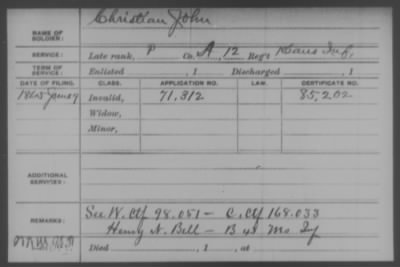 Christian John
NAME OF SOLDIER:
SERVICE: Late rank, P Co. A, 12 Reg't Kans Inf.
TERM OF SERVICE: Enlisted , 1 Discharged , 1
DATE OF FILING. CLASS. APPLICATION NO. LAW. CERTIFICATE NO.
1865 June 9 Invalid, 71,312 85,202
Widow,
Minor,
ADDITIONAL SERVICES:
See W. Ctf 98.051 - C. Ctf 168.033
REMARKS: Henry N. Bell - B 43 Mo If
Died , 1 , at